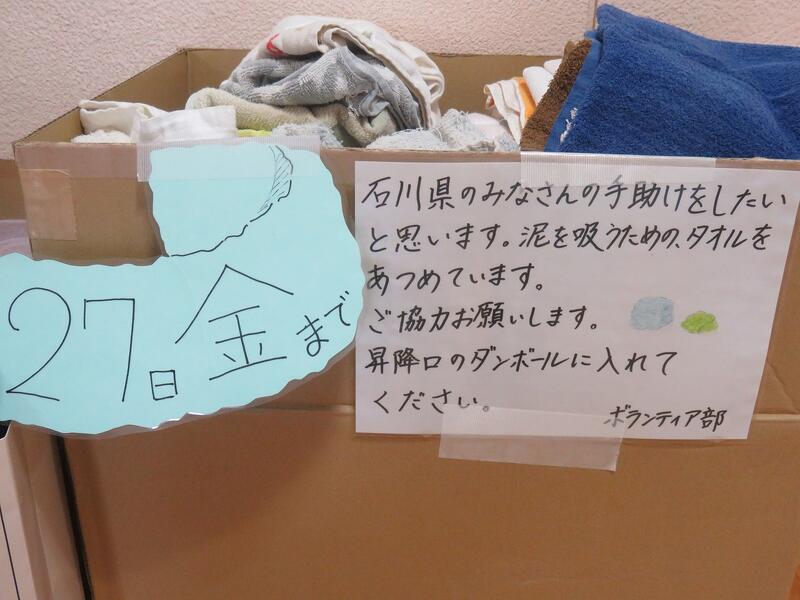 27日金まで
石川県のみなさんの手助けをしたい
と思います。泥を吸うための、タオルを
あつめています。
ご協力お願いします。
昇降口のダンボールに入れて
ください。
ボランティア部